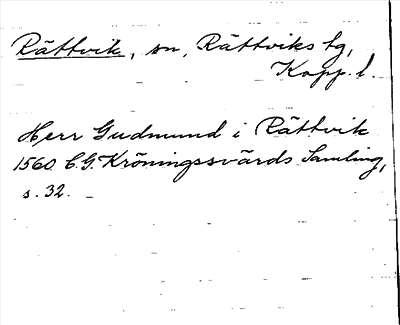 Rättvik, sn, Rättviks tg,
Kopp. l.
Herr Gudmund i Rättvik
1560. C.G. Kröningssvärds Samling,
s. 32.